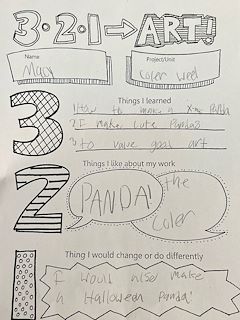 3·2·1→ART!
Name Project/Unit
Macy Coler weel
Things I learned
3
1 How to make a Panda
2 I make cute Pandas
3 to valve goal art
Things I like about my work
2
PANDA! the
coler
Thing I would change or do differently
1
I would also make
a Halloween Panda!